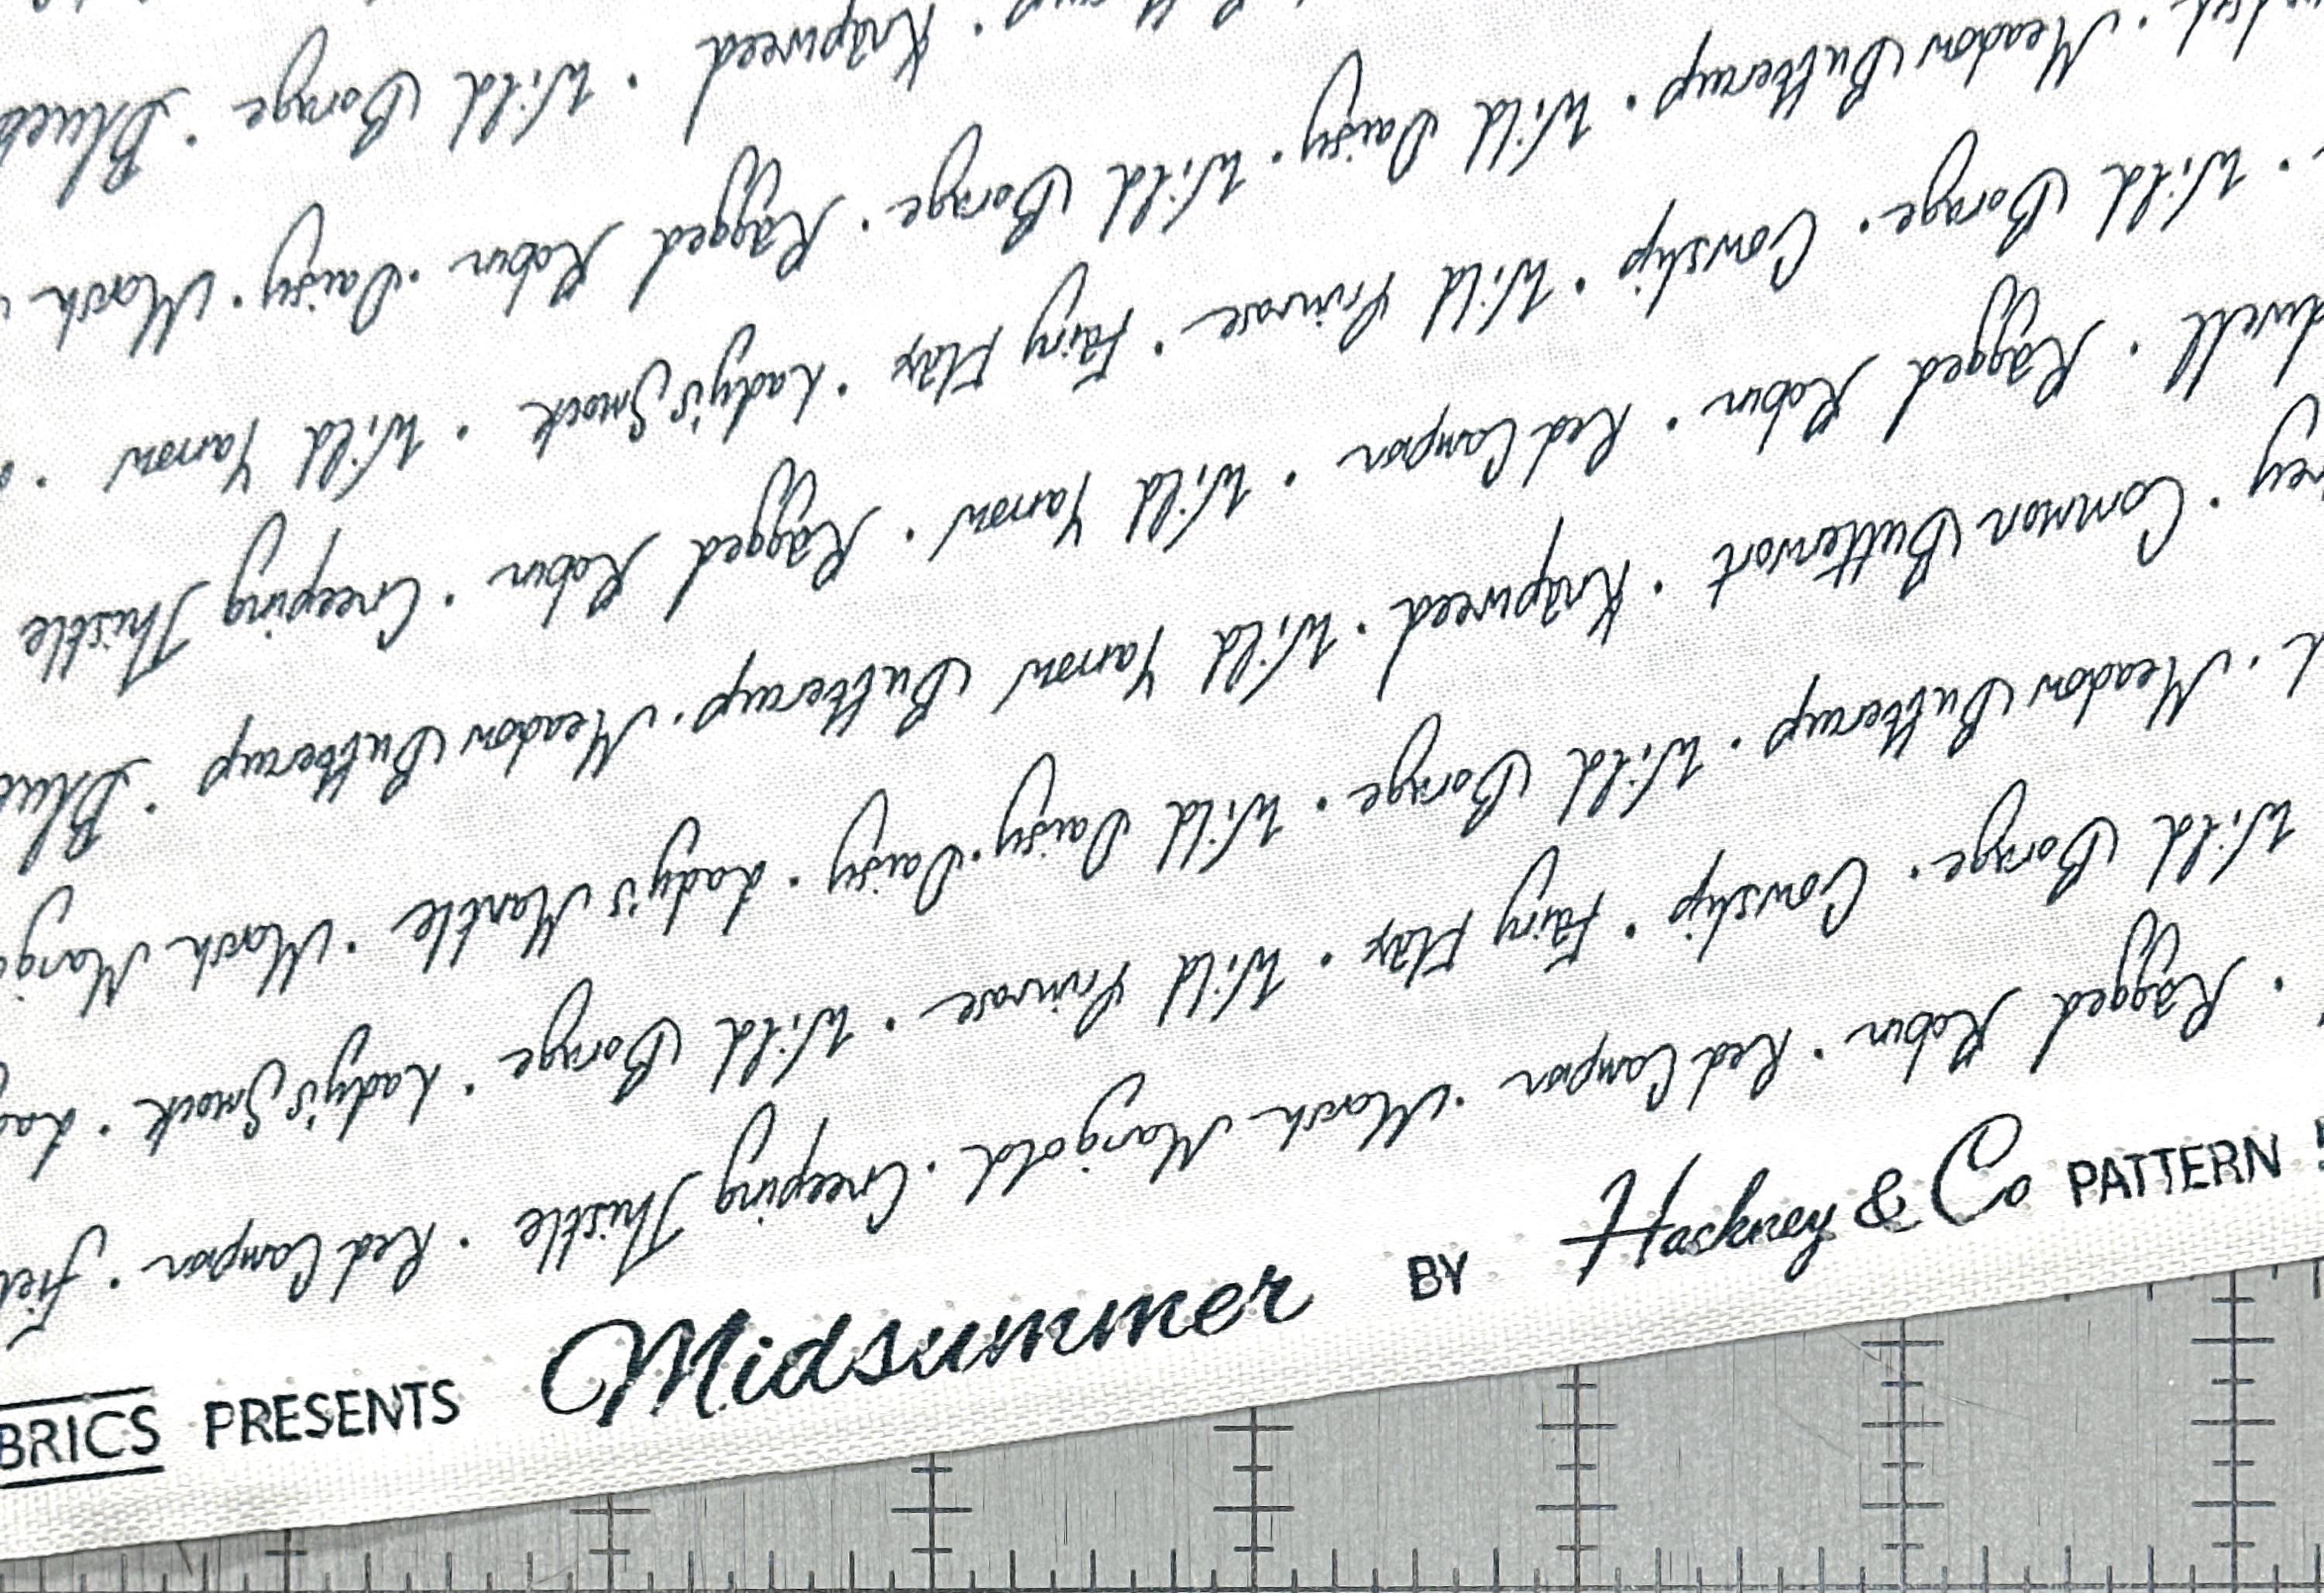 • Ragged Robin • Red Campion • Marsh Marigold • Creeping Thistle • Red Campion •
Wild Borage • Cowslip • Fairy Flax • Wild Primrose • Wild Borage • Lady's Smock •
• Meadow Buttercup • Wild Borage • Wild Daisy • Daisy • Lady's Mantle • Marsh
• Common Butterwort • Knapweed • Wild Yarrow Buttercup • Meadow Buttercup •
• Ragged Robin • Red Campion • Wild Yarrow • Ragged Robin • Creeping Thistle
• Wild Borage • Cowslip • Wild Primrose • Fairy Flax • Lady's Smock • Wild Yarrow •
• Meadow Buttercup • Wild Daisy • Wild Borage • Ragged Robin • Daisy • Marsh
• Knapweed • Wild Borage •
BRICS PRESENTS Midsummer BY Hackney & Co PATTERN